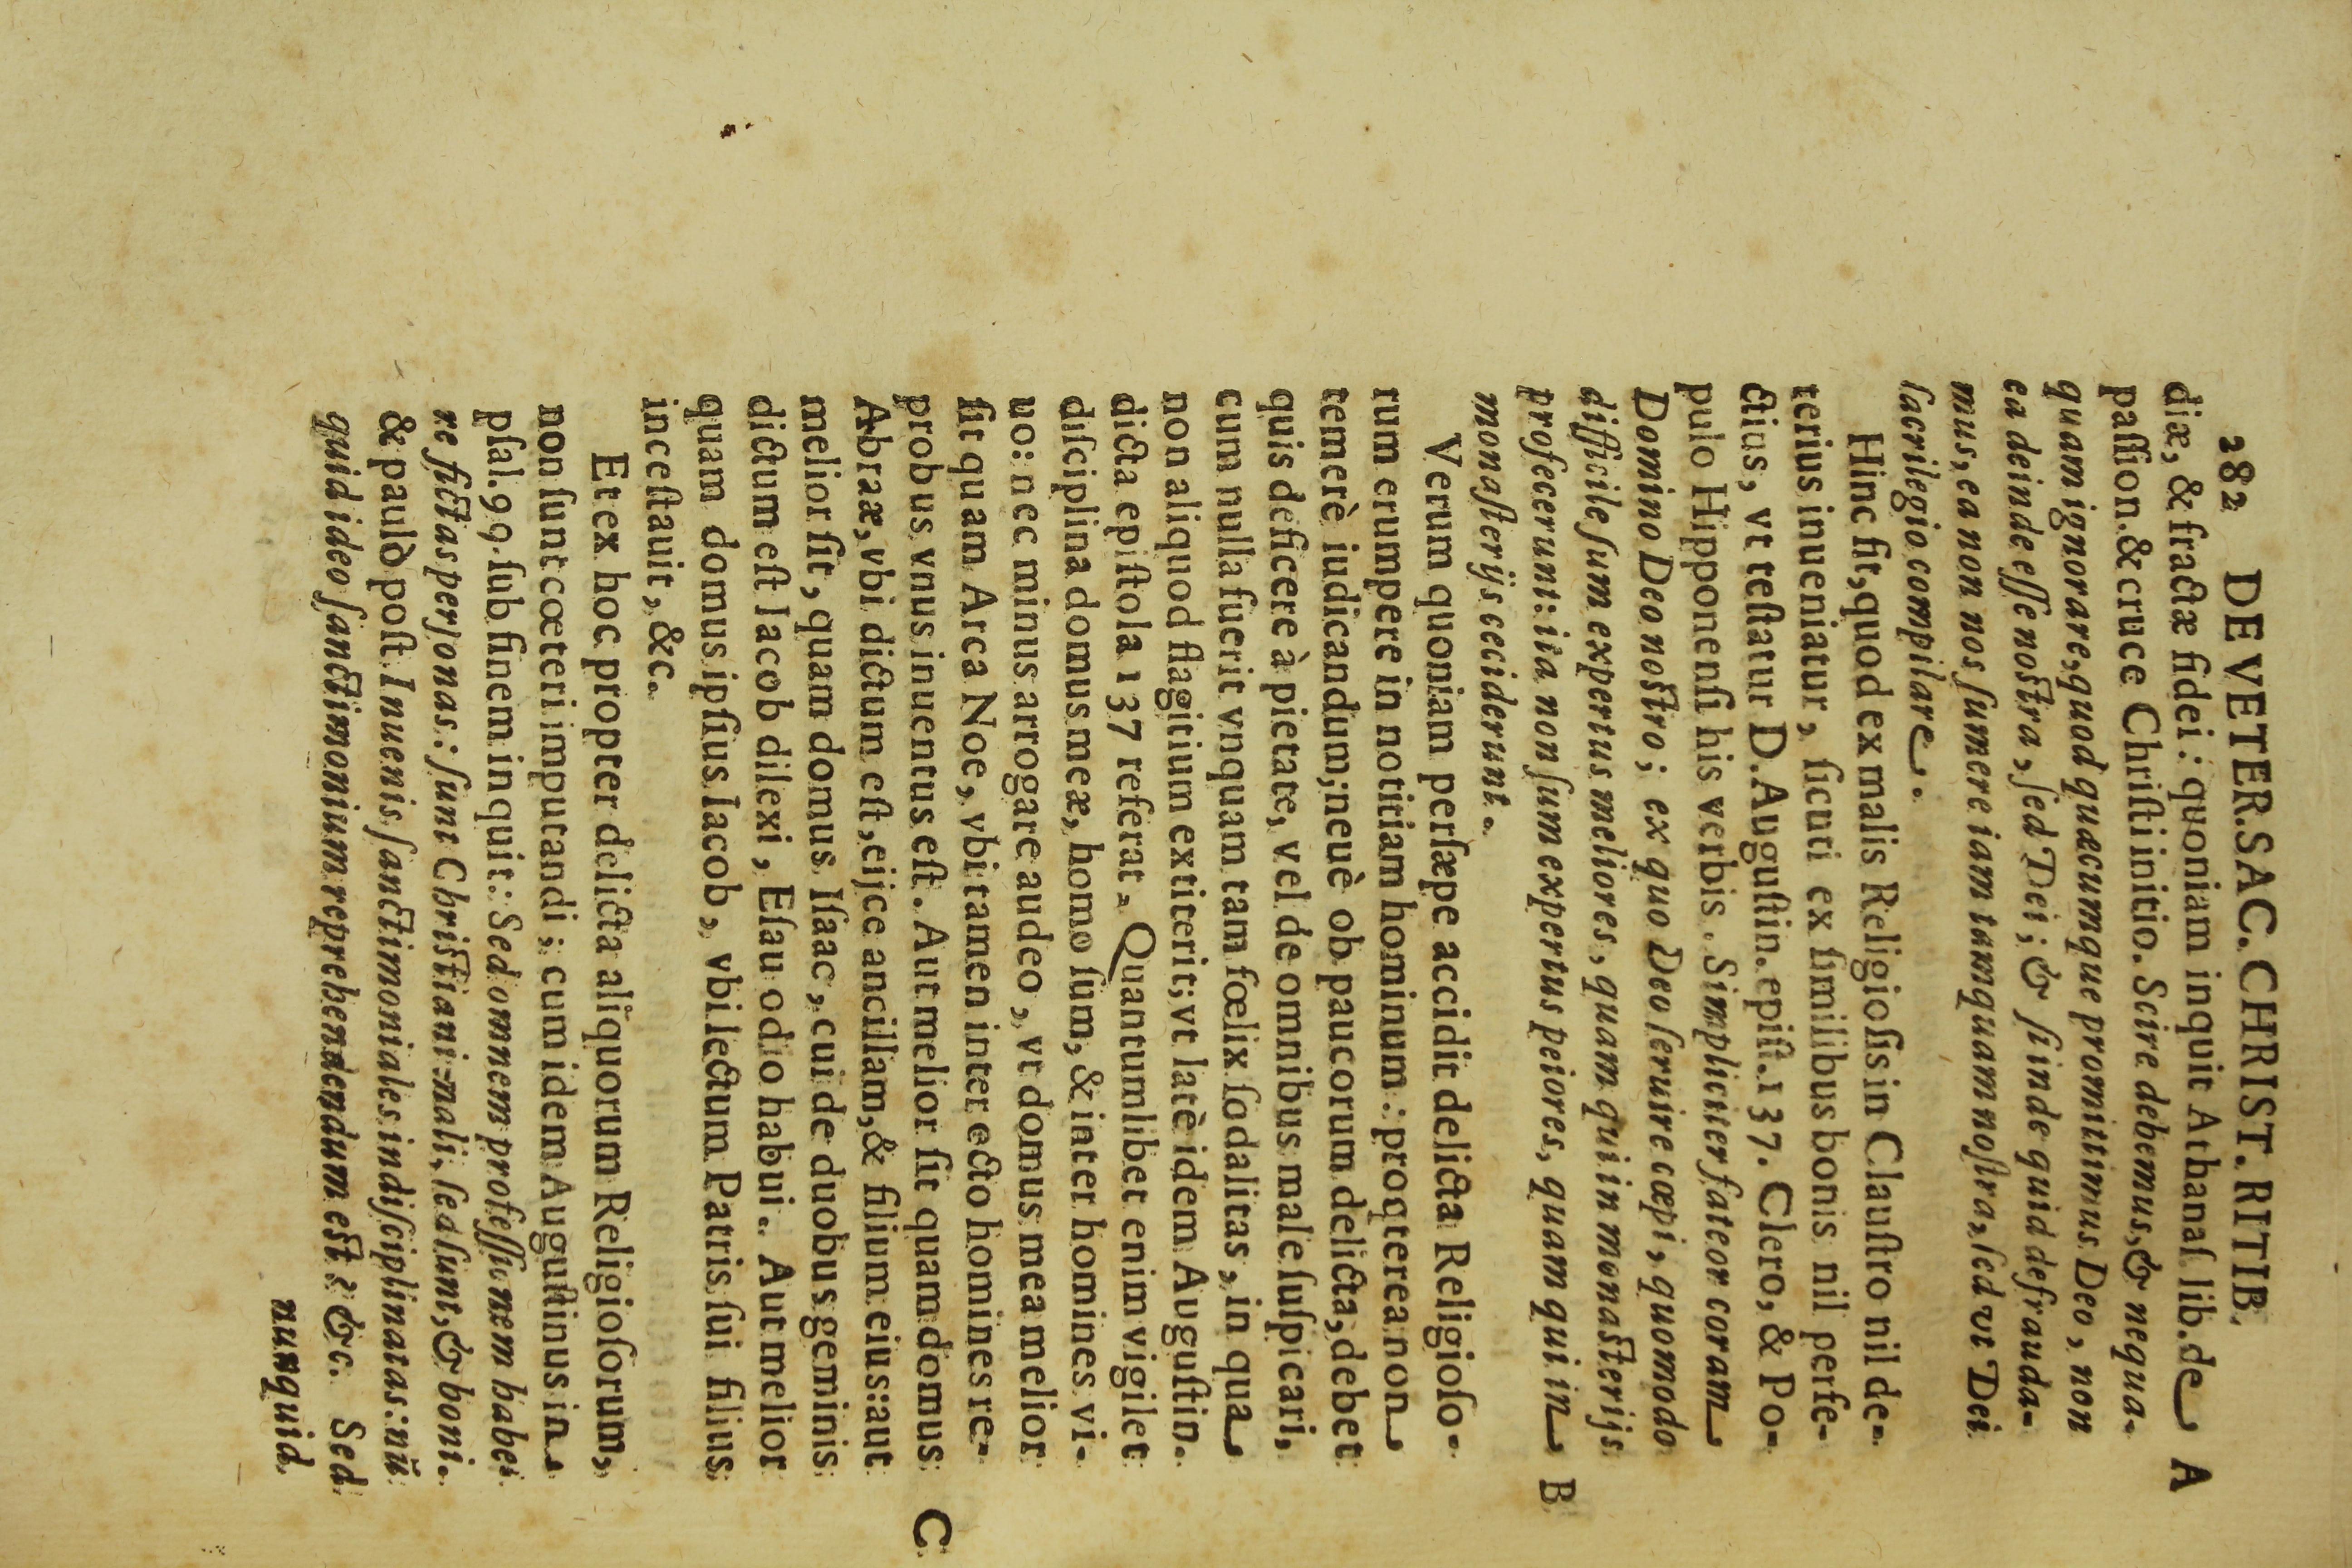 282 DE VETER. SAC. CHRIST. RITIB.
diæ, & fractæ fidei: quoniam inquit Athanaſ lib. de A
paſſion. & cruce Chriſti initio. Scire debemus, & nequa-
quam ignorare, quod quæcumque promittimus Deo, non
ea deinde eſſe noſtra, ſed Dei; & ſi inde quid defrauda-
mus, ea non nos ſumere iam tamquam noſtra, ſed vt Dei
ſacrilegio compilare.
Hinc fit, quod ex malis Religioſis in Clauſtro nil de-
terius inueniatur, ſicuti ex ſimilibus bonis nil perfe-
ctius, vt teſtatur D. Auguſtin. epiſt. 137. Clero, & Po-
pulo Hipponenſi his verbis. Simpliciter fateor coram
Domino Deo noſtro; ex quo Deo ſeruire cœpi, quomodo
difficile ſum expertus meliores, quam qui in monaſterijs
profecerunt: ita non ſum expertus peiores, quam qui in B
monaſterijs ceciderunt.
Verum quoniam perſæpe accidit delicta Religioſo-
rum erumpere in notitiam hominum: proqterea non
temerè iudicandum; neuè ob paucorum delicta, debet
quis deficere à pietate, vel de omnibus male ſuſpicari,
cum nulla fuerit vnquam tam fœlix ſodalitas, in qua
non aliquod flagitium extiterit; vt latè idem Auguſtin.
dicta epiſtola 137 referat. Quantumlibet enim vigilet
diſciplina domus meæ, homo ſum, & inter homines vi-
uo: nec minus arrogare audeo, vt domus mea melior
ſit quam Arca Noe, vbi tamen inter octo homines re-
probus vnus inuentus eſt. Aut melior ſit quam domus C
Abraæ, vbi dictum eſt, eijce ancillam, & filium eius: aut
melior ſit, quam domus Iſaac, cui de duobus geminis
dictum eſt Iacob dilexi, Eſau odio habui. Aut melior
quam domus ipſius Iacob, vbi lectum Patris ſui filius
inceſtauit, &c.
Et ex hoc propter delicta aliquorum Religioſorum,
non ſunt cœteri imputandi; cum idem Auguſtinus in
pſal. 99. ſub finem inquit: Sed omnem profeſſionem habet
re fictas perſonas: ſunt Chriſtiani mali, ſed ſunt, & boni.
& paulò poſt Inuenis ſanctimoniales indiſciplinatas: nũ
quid ideo ſanctimonium reprehendendum eſt? &c. Sed
nunquid